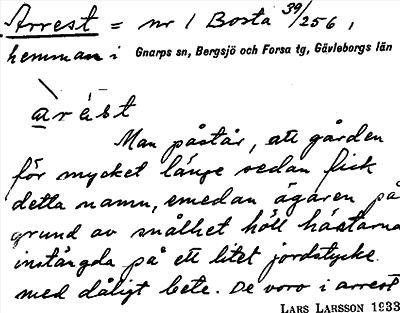 Arrest = nr 1 Bosta 39/256,
hemman i Gnarps sn, Bergsjö och Forsa tg, Gävleborgs län
arest
Man påstår, att gården
för mycket länge sedan fick
detta namn, emedan ägaren på
grund av snålhet höll hästarna
instängda på ett litet jordstycke
med dåligt bete. De voro i arrest
LARS LARSSON 1933